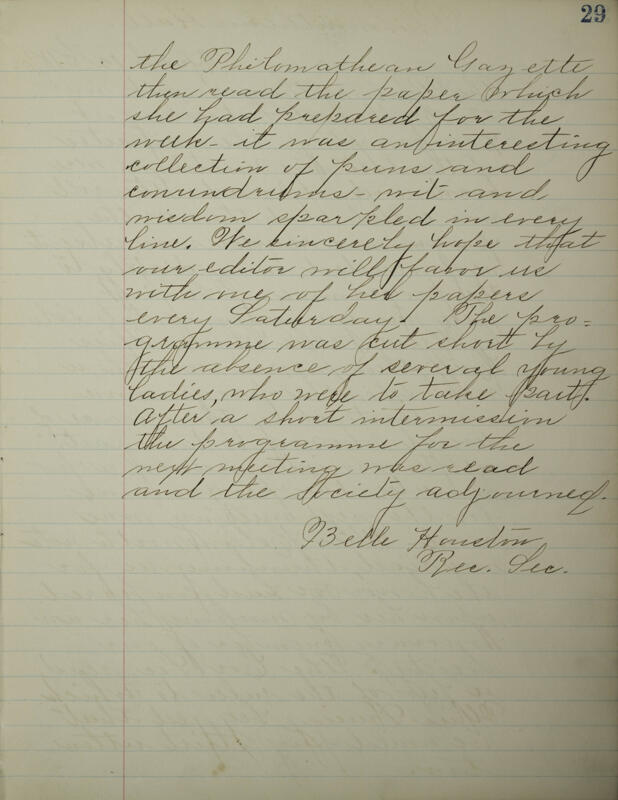 29
the Philomathean Gazette
then read the paper which
she had prepared for the
week - it was an interesting
collection of puns and
conundrums - wit and
wisdom sparkled in every
line. We sincerely hope that
our editor will favor us
with one of her papers
every Saturday. The pro=
gramme was cut short by
the absence of several young
ladies, who were to take part.
After a short intermission
the programme for the
next meeting was read
and the society adjourned.
Belle Houston
Rec. Sec.